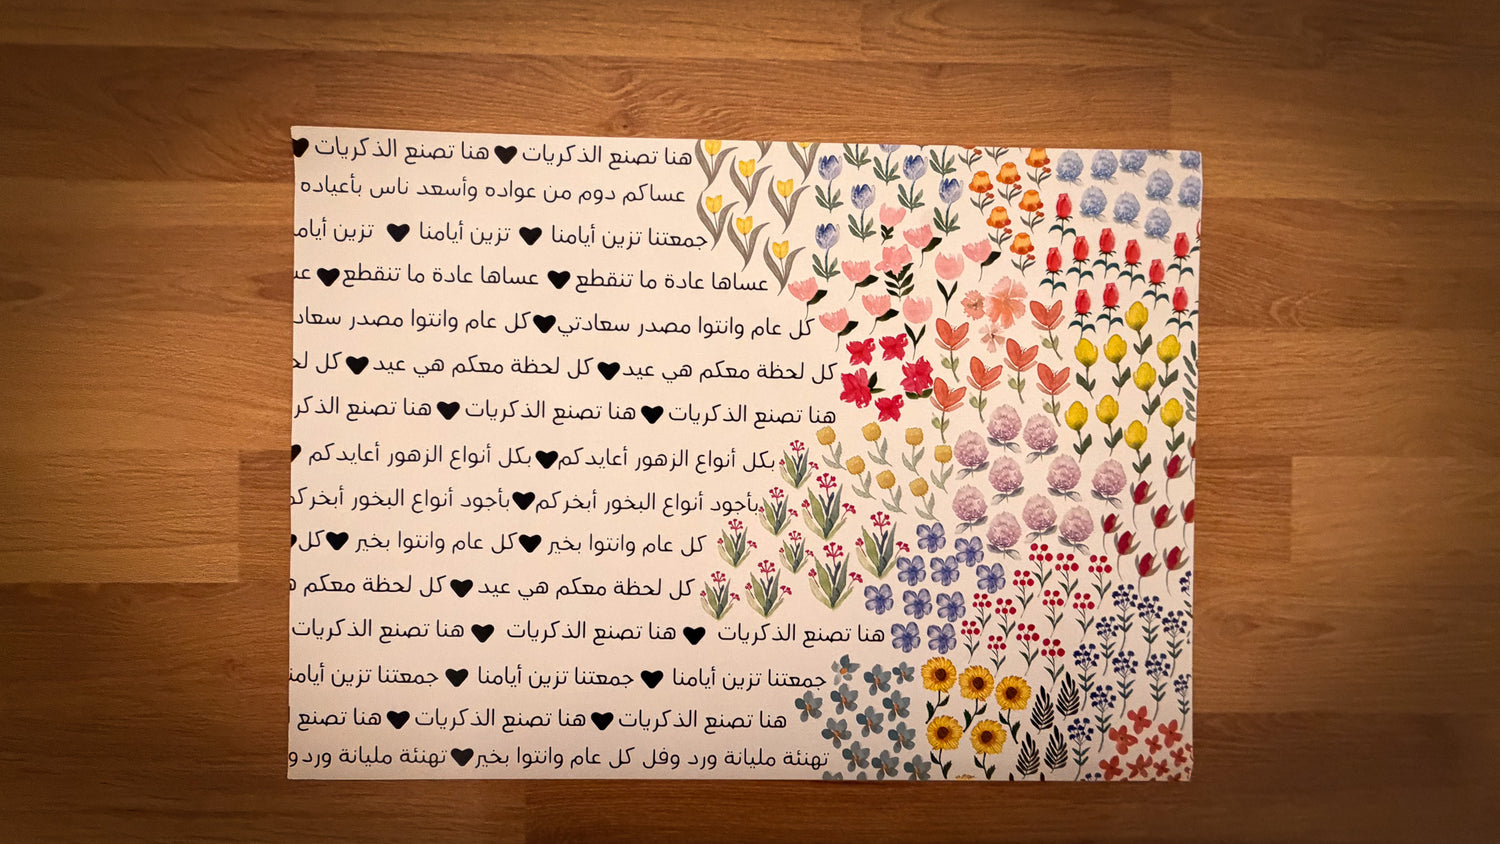 هنا تصنع الذكريات ♥ هنا تصنع الذكريات ♥
عساكم دوم من عواده وأسعد ناس بأعياده
جمعتنا تزين أيامنا ♥ تزين أيامنا ♥ تزين أيامنا
عساها عادة ما تنقطع ♥ عساها عادة ما تنقطع ♥
كل عام وانتوا مصدر سعادتي ♥ كل عام وانتوا مصدر
كل لحظة معكم هي عيد ♥ كل لحظة معكم هي عيد ♥ كل
هنا تصنع الذكريات ♥ هنا تصنع الذكريات ♥ هنا تصنع
بكل أنواع الزهور أعايدكم ♥ بكل أنواع الزهور أعايدكم ♥
بأجود أنواع البخور أبخركم ♥ بأجود أنواع البخور أبخركم
كل عام وانتوا بخير ♥ كل عام وانتوا بخير ♥ كل ♥
كل لحظة معكم هي عيد ♥ كل لحظة معكم
هنا تصنع الذكريات ♥ هنا تصنع الذكريات ♥ هنا تصنع الذكريات
جمعتنا تزين أيامنا ♥ جمعتنا تزين أيامنا ♥ جمعتنا تزين أيامنا
هنا تصنع الذكريات ♥ هنا تصنع الذكريات ♥ هنا تصنع
تهنئة مليانة ورد وفل كل عام وانتوا بخير ♥ تهنئة مليانة ورد و